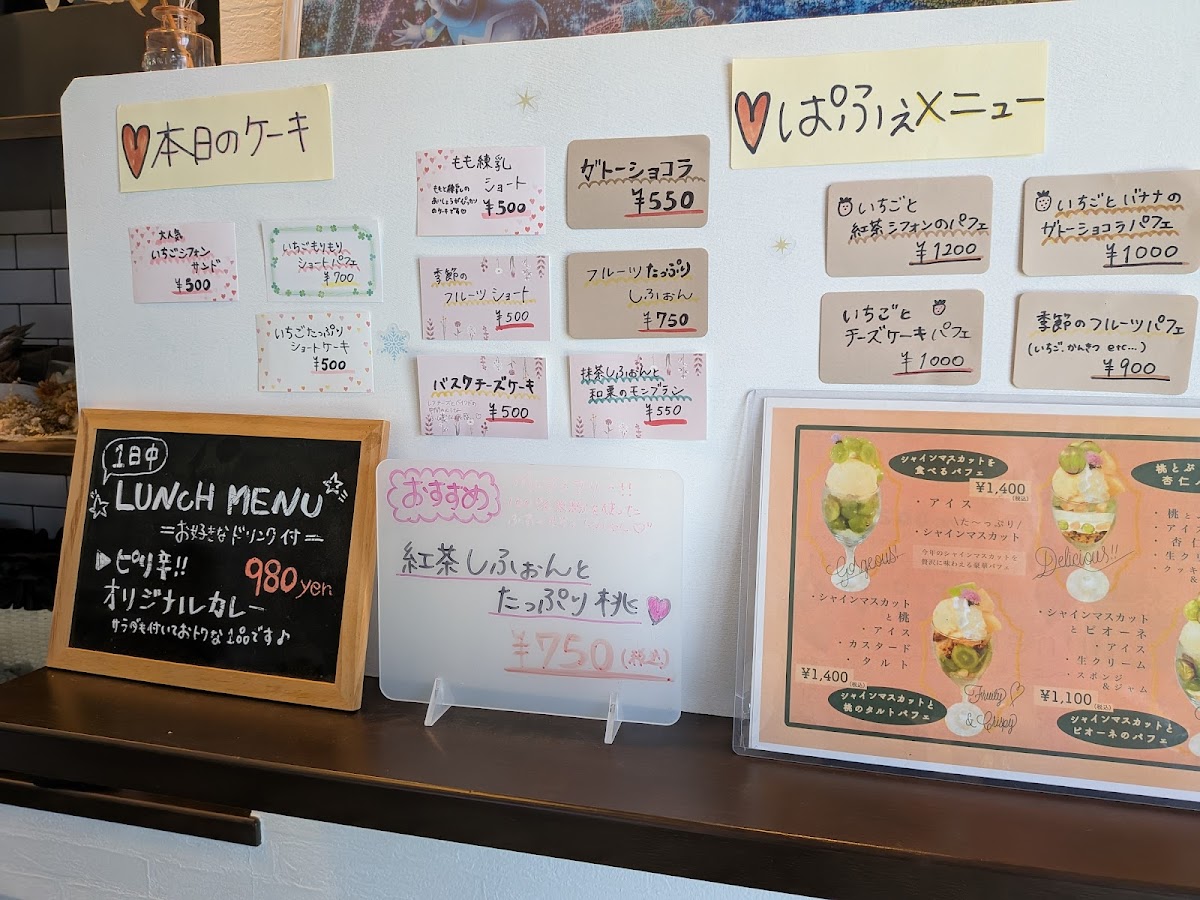 本日のケーキ
大人気
いちごシフォン
サンド
¥500
いちごもりもり
ショートパフェ
¥700
いちごたっぷり
ショートケーキ
¥500
もも練乳
ショート
¥500
季節の
フルーツショート
¥500
バスクチーズケーキ
¥500
ガトーショコラ
¥550
フルーツたっぷり
しふぉん
¥750
抹茶しふぉんと
和栗のモンブラン
¥550
ぱふぇメニュー
いちごと
紅茶シフォンのパフェ
¥1200
いちごとバナナの
ガトーショコラパフェ
¥1000
いちごと
チーズケーキパフェ
¥1000
季節のフルーツパフェ
(いちご.かんきつ etc...)
¥900
1日中
LUNCH MENU
=お好きなドリンク付=
▶ピリ辛!!
オリジナルカレー
980yen
サラダも付いておトクな1品です♪
おすすめ
紅茶しふぉんと
たっぷり桃
¥750(税込)
シャインマスカットを
食べるパフェ
¥1,400
(税込)
・アイス
\た〜っぷり/
・シャインマスカット
今年のシャインマスカットを
贅沢に味わえる豪華パフェ
Gorgeous!
Delicious!!
・シャインマスカット
と桃
・アイス
・カスタード
・タルト
¥1,400
(税込)
シャインマスカットと
桃のタルトパフェ
Fruity
& Crispy
・シャインマスカット
とピオーネ
・アイス
・生クリーム
・スポンジ
&ジャム
¥1,100
(税込)
シャインマスカットと
ピオーネのパフェ
桃とぷ
杏仁
・桃と
・アイ
・杏仁
・生ク
・クッキ
&